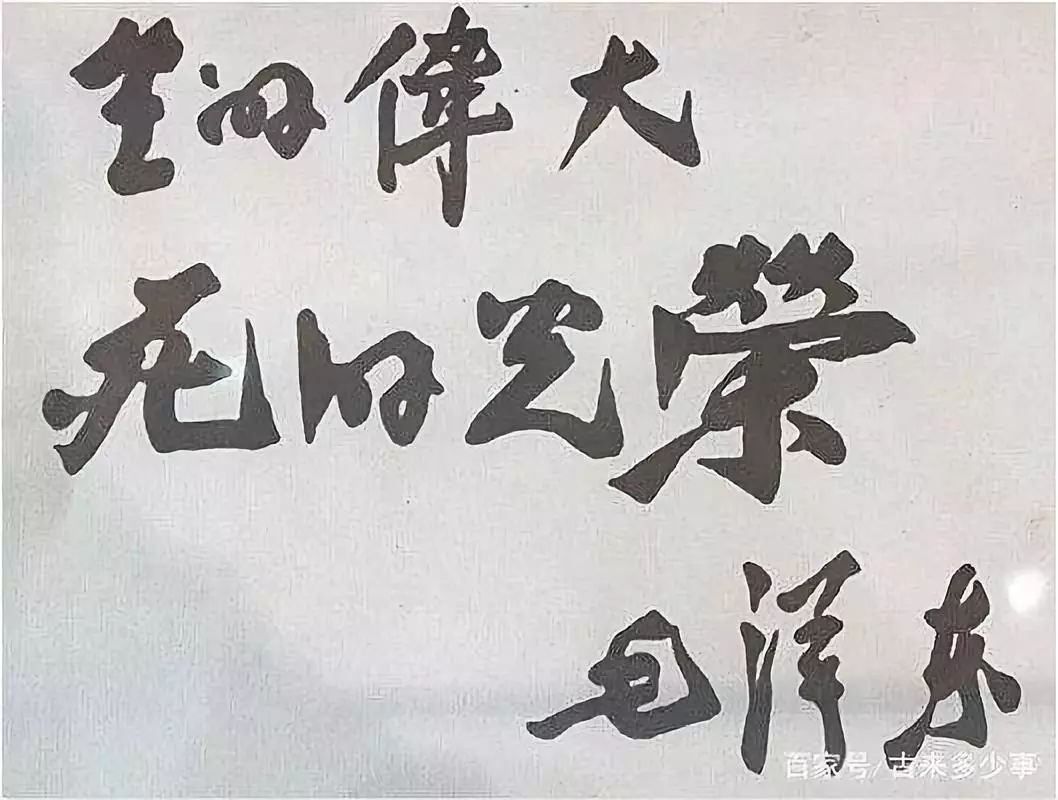 生的偉大
死的光榮
毛澤东
百家号/古来多少事